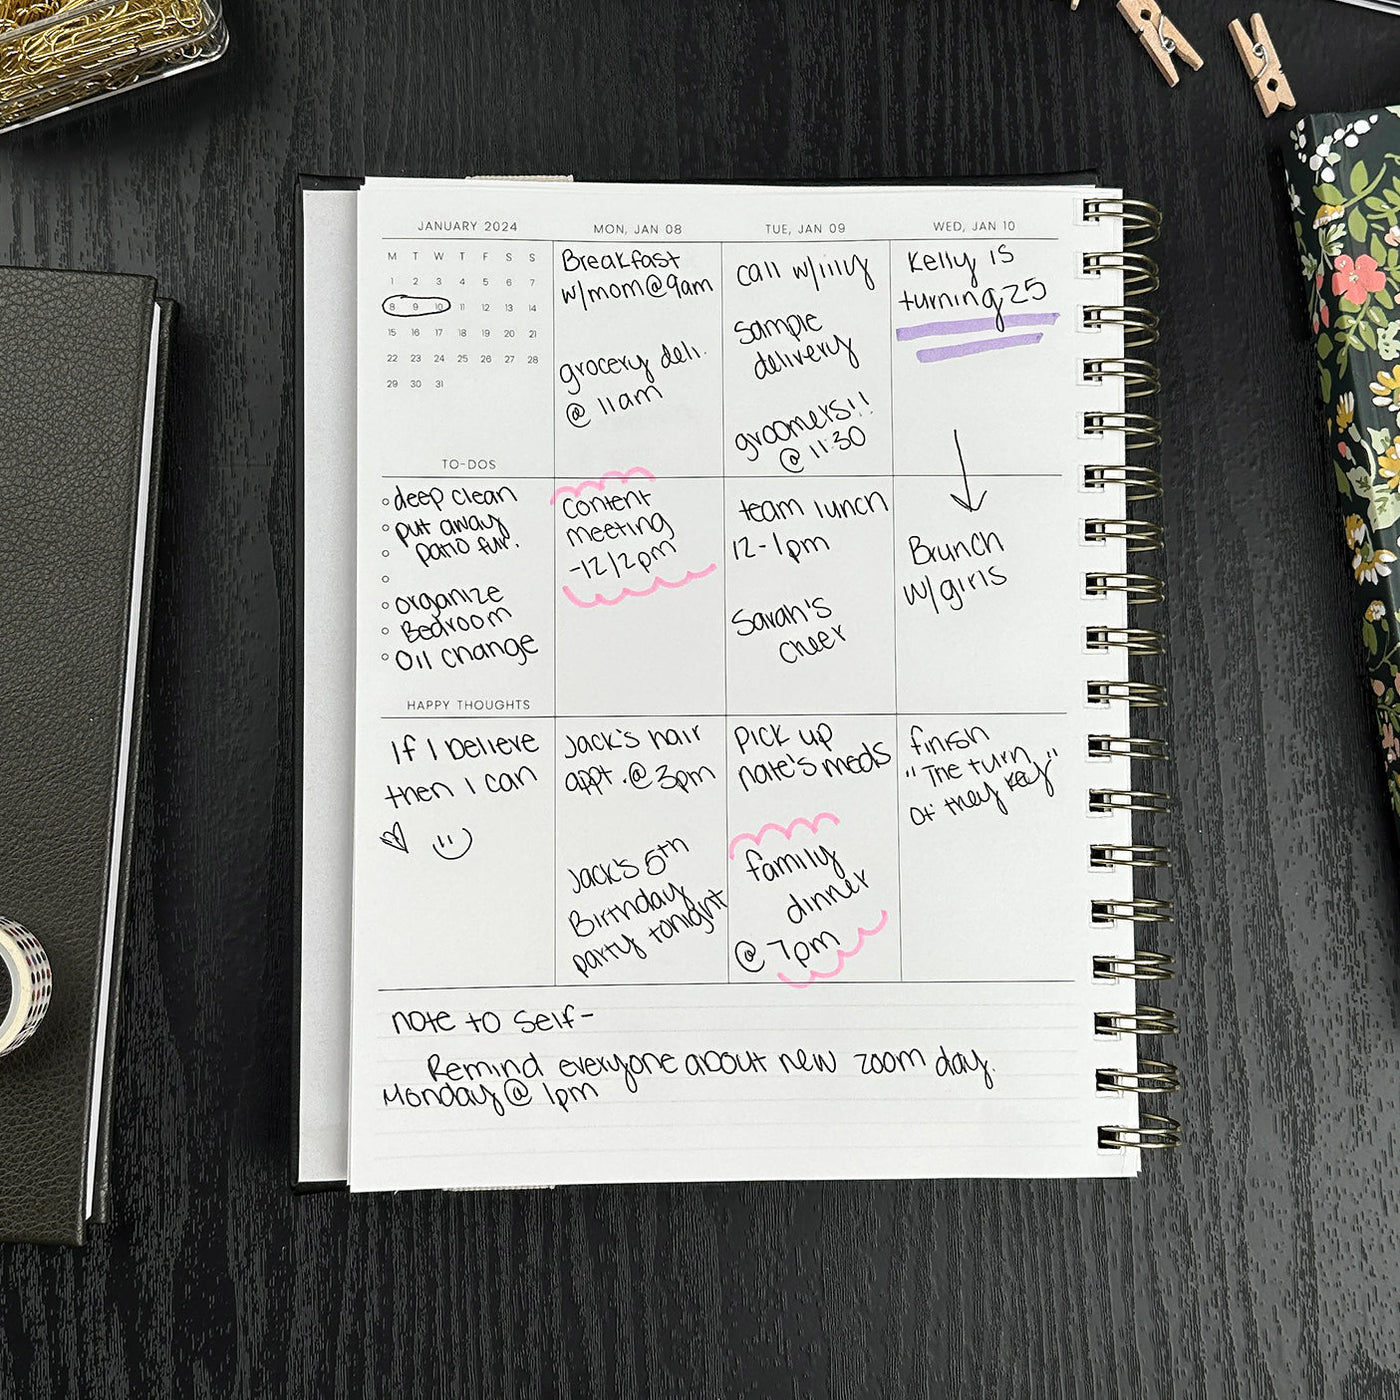 JANUARY 2024
M T W T F S S
1 2 3 4 5 6 7
8 9 10 11 12 13 14
15 16 17 18 19 20 21
22 23 24 25 26 27 28
29 30 31
TO-DOS
deep clean
put away
patio fur.
organize
Bedroom
Oil change
HAPPY THOUGHTS
If I believe
then I can
MON, JAN 08
Breakfast
w/mom@9am
grocery deli.
@ 11am
Content
meeting
-12/2pm
Jack's hair
appt.@3pm
Jack's 5th
Birthday
party tonight
TUE, JAN 09
call w/lily
Sample
delivery
groomers!!
@ 11:30
team lunch
12-1pm
Sarah's
cheer
Pick up
nate's meds
family
dinner
@ 7pm
WED, JAN 10
Kelly is
turning 25
Brunch
w/girls
finish
"The turn
of they Key"
note to self-
Remind everyone about new zoom day.
Monday@ 1pm